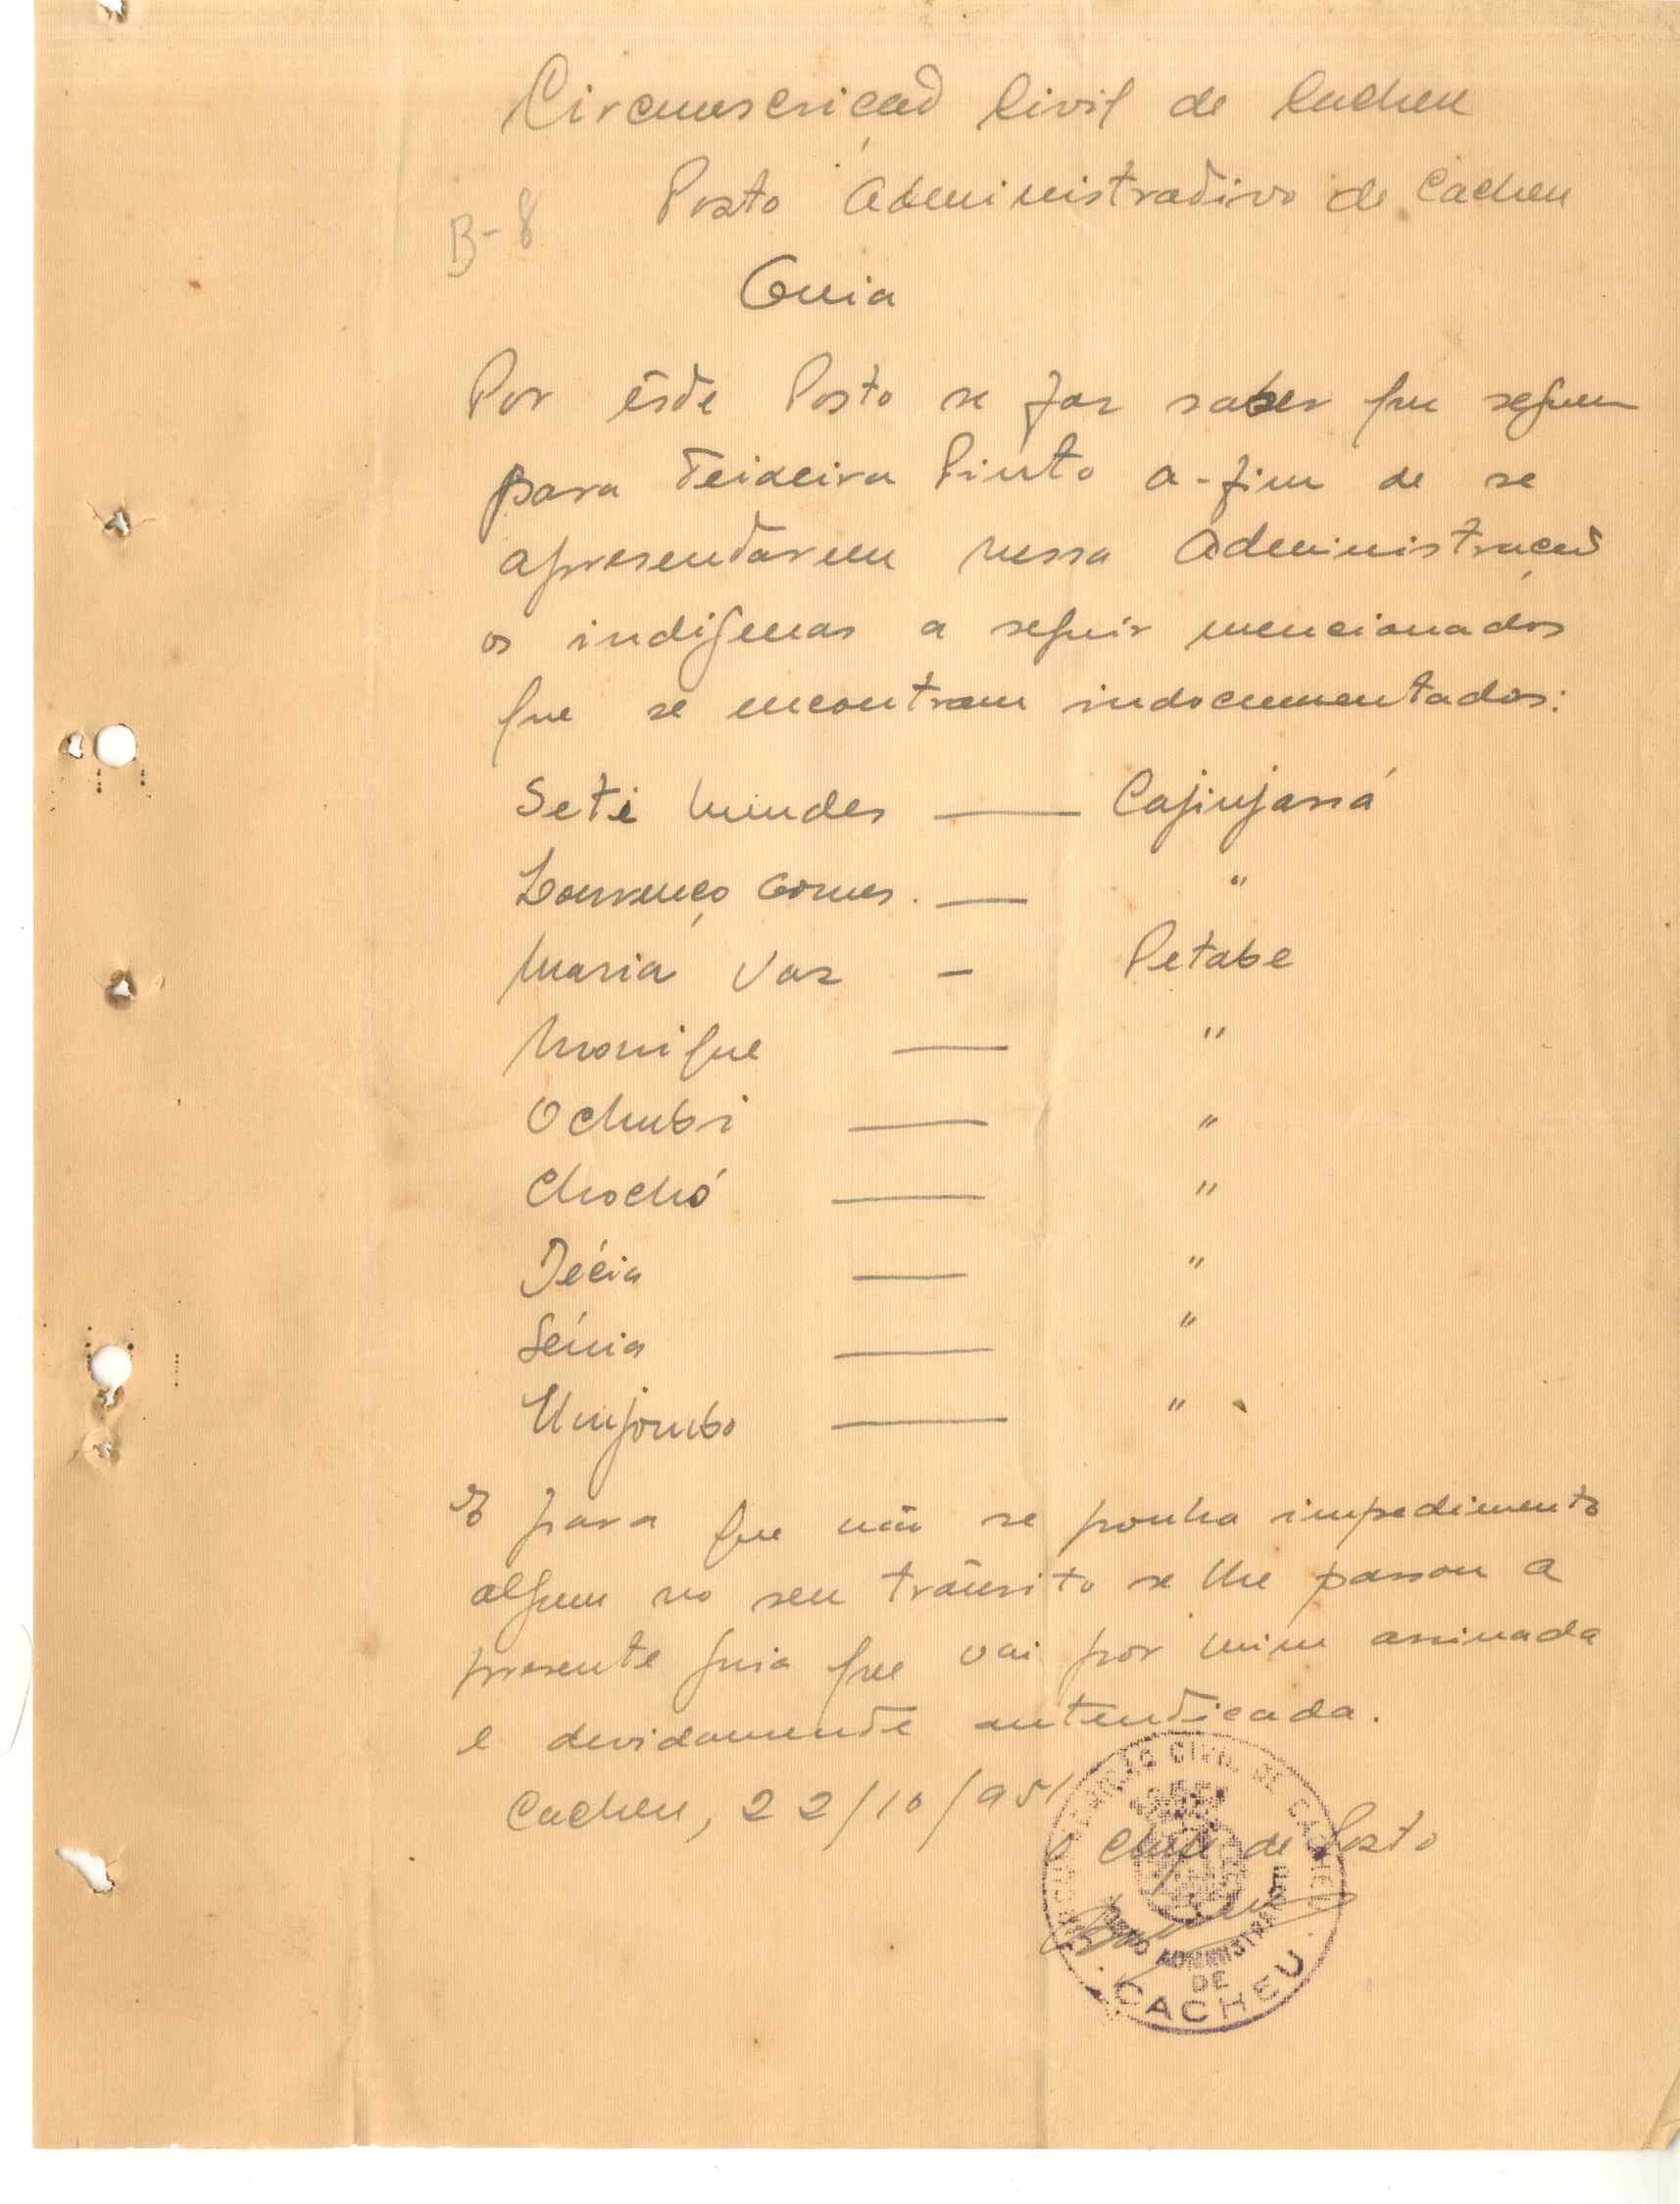 Circunscrição Civil de Cacheu
Posto Administrativo de Cacheu
B-8
Guia
Por êste Posto se faz saber que seguem
para Teixeira Pinto a-fim de se
apresentarem nessa Administração
os indígenas a seguir mencionados
que se encontram indocumentados:
Seti Mendes — Cajinjassá
Lourenço Gomes. — "
Maria Vaz — Petabe
Monique — "
Ochubi — "
Chochó — "
Décia — "
Sénia — "
Umjombo — "
E para que não se ponha impedimento
algum no seu trânsito se lhe passou a
presente guia que vai por mim assinada
e devidamente autenticada.
Cacheu, 22/10/951
O Chefe de Posto
CIRCUNSCRIÇÃO CIVIL DE CACHEU
POSTO ADMINISTRATIVO
DE
CACHEU